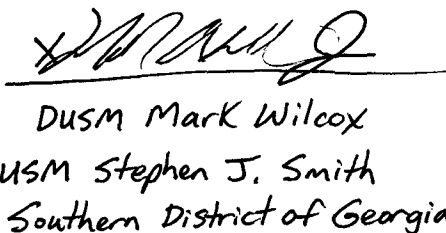 DUSM Mark Wilcox
USM Stephen J. Smith
Southern District of Georgia